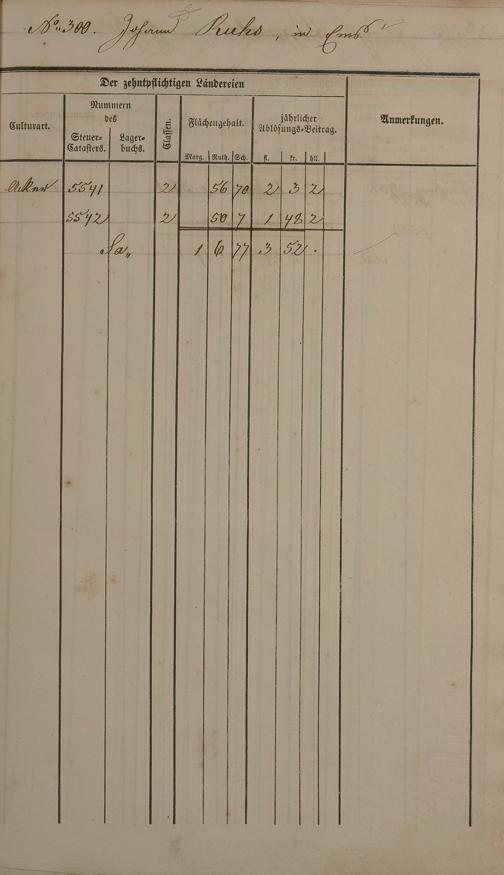 No. 300. Johann Ruhs, in Ems
Der zehntpflichtigen Ländereien
Culturart.
Nummern des
Steuer-Catasters.
Lager-buchs.
Classen.
Flächengehalt.
Morg. Ruth. Sch.
jährlicher Ablösungs-Beitrag.
fl. kr. hll.
Anmerkungen.
Acker 5541 2 56 70 2 3 2
5542 2 50 7 1 48 2
Sa. 1 6 77 3 52 .